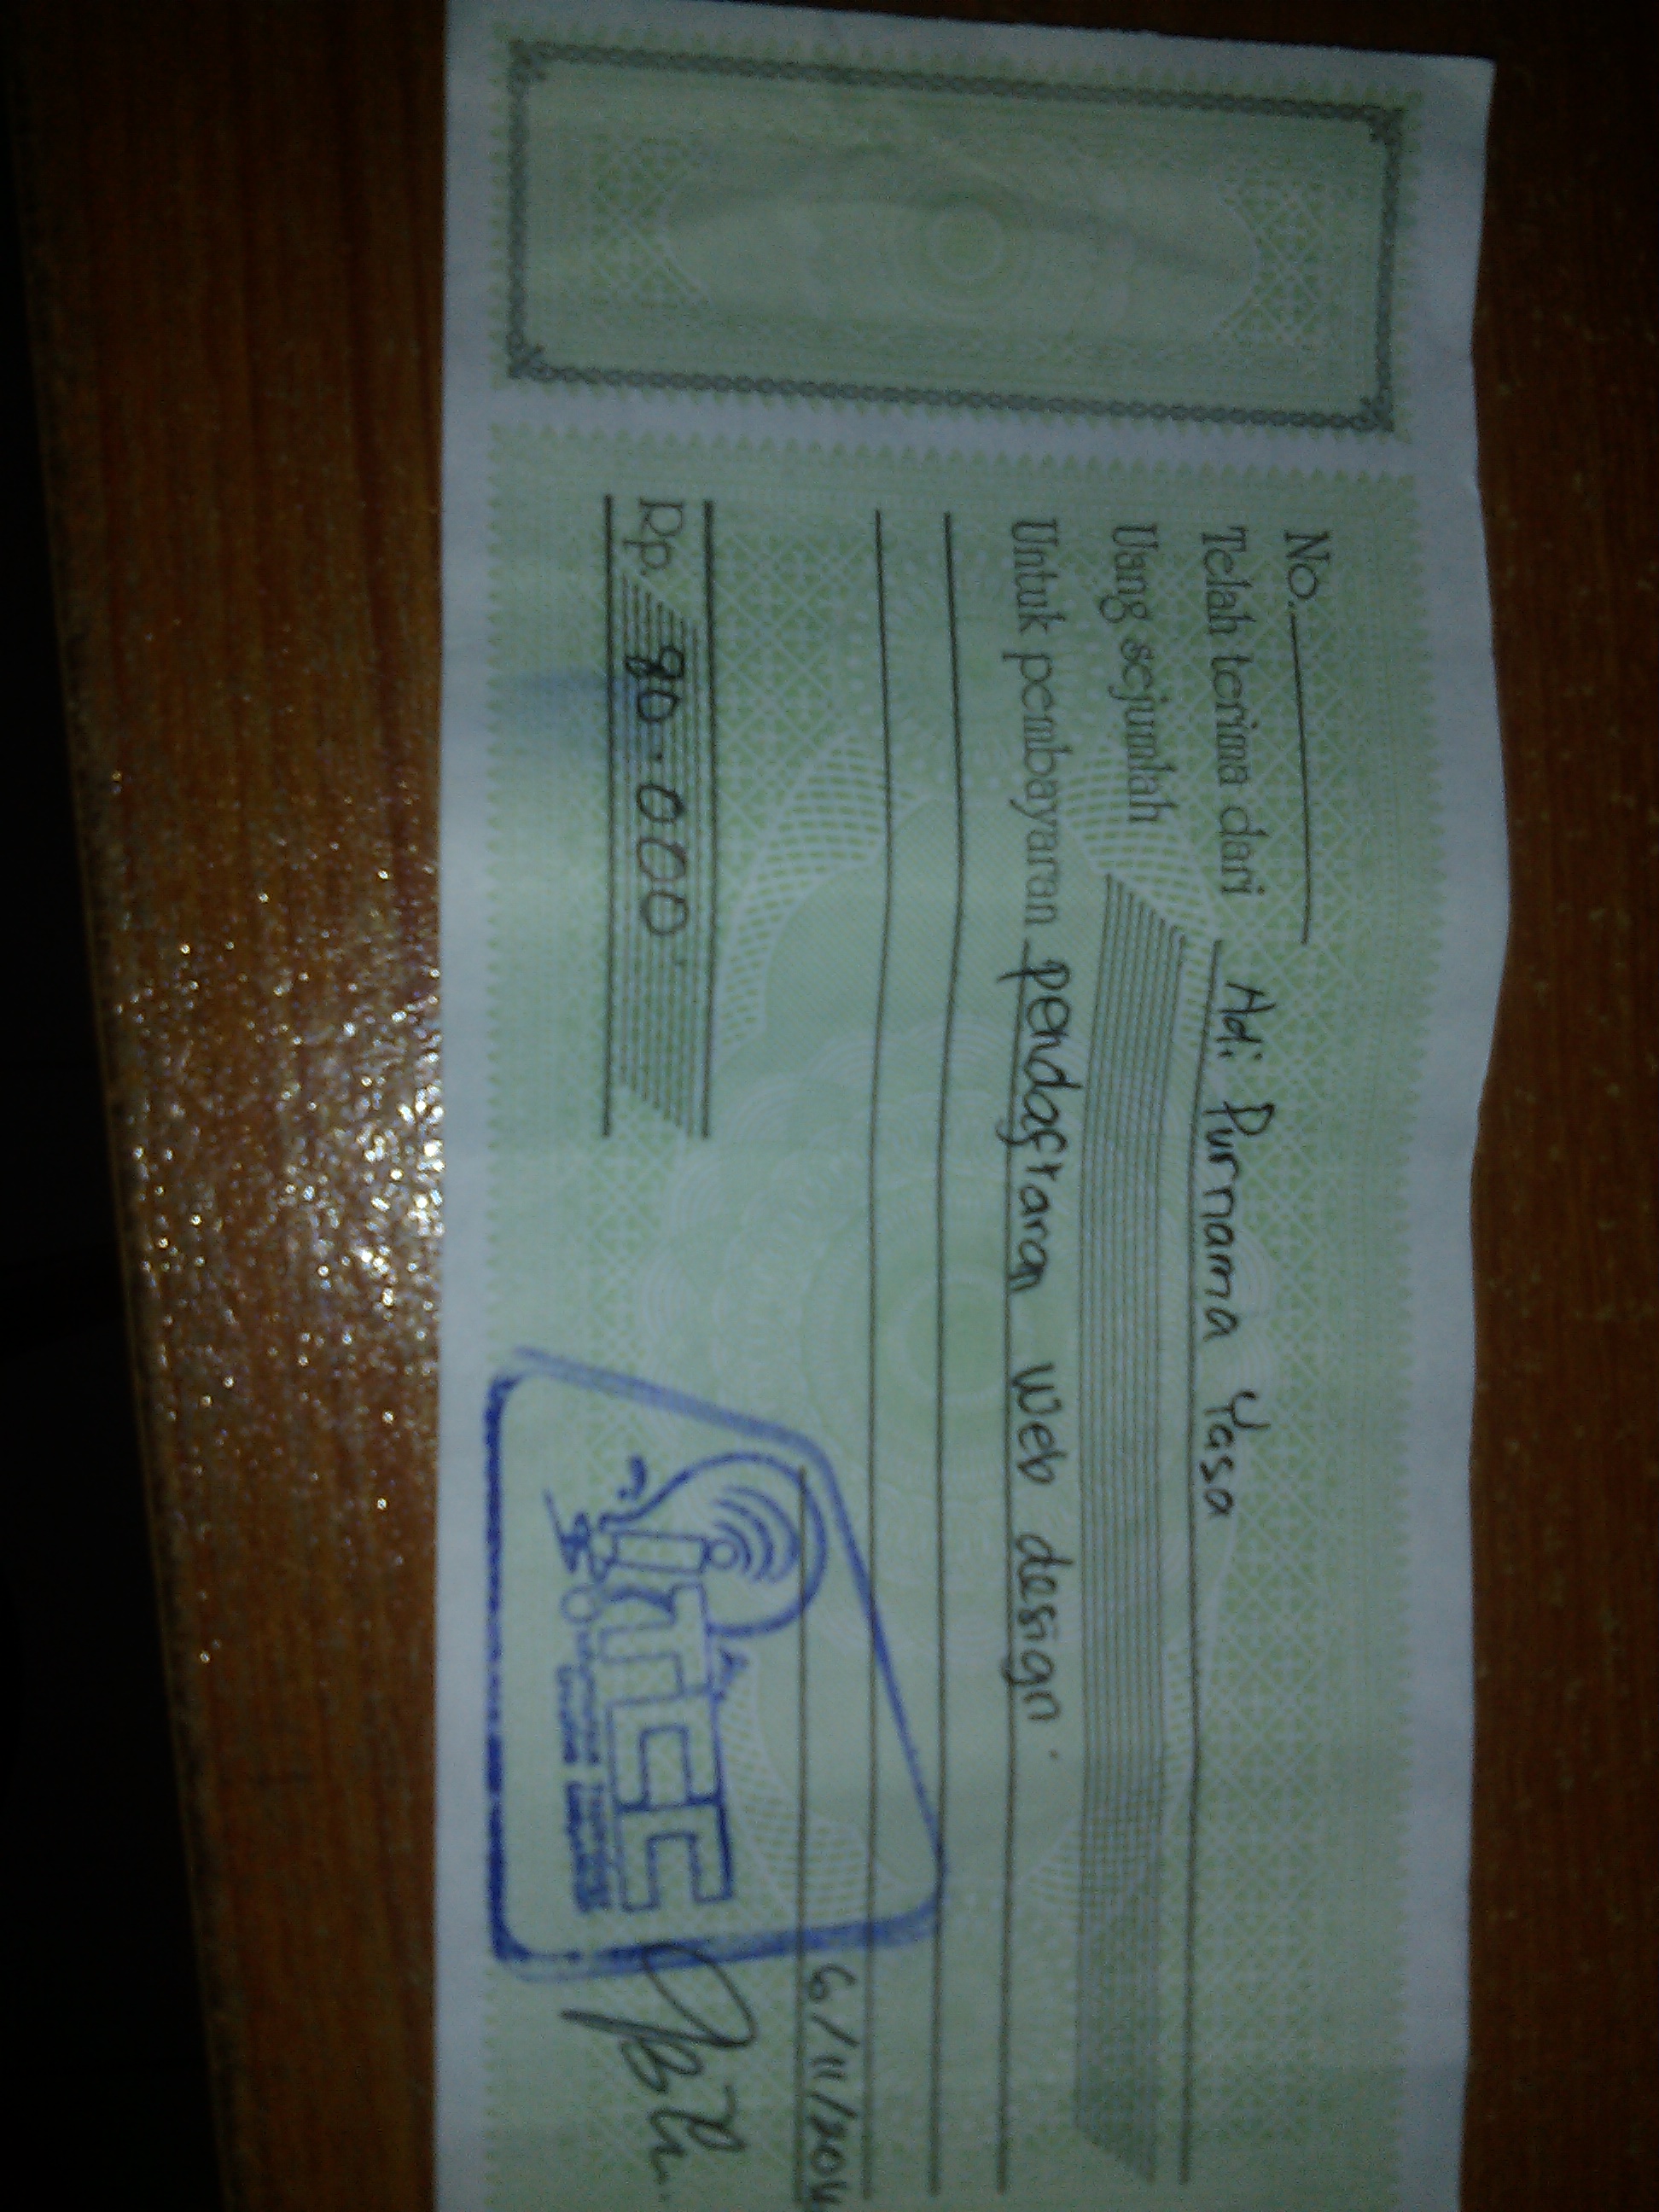 No.
Telah terima dari Adi Purnama Yasa
Uang sejumlah
Untuk pembayaran pendaftaran web design.
6/11/2014
Rp. 80.000